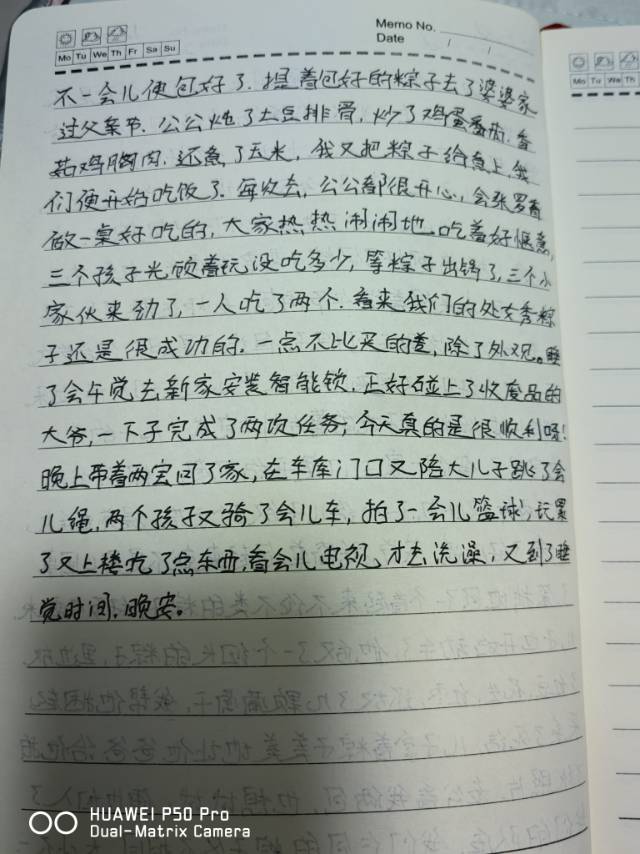 Memo No.
Date / /
Mo Tu We Th Fr Sa Su
Mo Tu We Th
不一会儿便包好了.提着包好的粽子去了婆婆家
过父亲节.公公炖了土豆排骨,炒了鸡蛋番茄.香
菇鸡胸肉.还煮了玉米,我又把粽子给煮上.我
们便开始吃饭了.每次去,公公都很开心,会张罗着
做一桌好吃的,大家热热闹闹地.吃着好惬意,
三个孩子光顾着玩没吃多少,等粽子出锅了,三个小
家伙来劲了,一人吃了两个.看来我们的处女秀粽
子还是很成功的.一点不比买的差,除了外观。睡
了会午觉去新家安装智能锁.正好碰上了收废品的
大爷,一下子完成了两项任务,今天真的是很顺利呀!
晚上带着两宝回了家,在车库门口又陪大儿子跳了会
儿绳,两个孩子又骑了会儿车,拍了一会儿篮球,玩累
了又上楼吃了点东西,看会儿电视,才去洗澡,又到了睡
觉时间.晚安。
HUAWEI P50 Pro
Dual-Matrix Camera